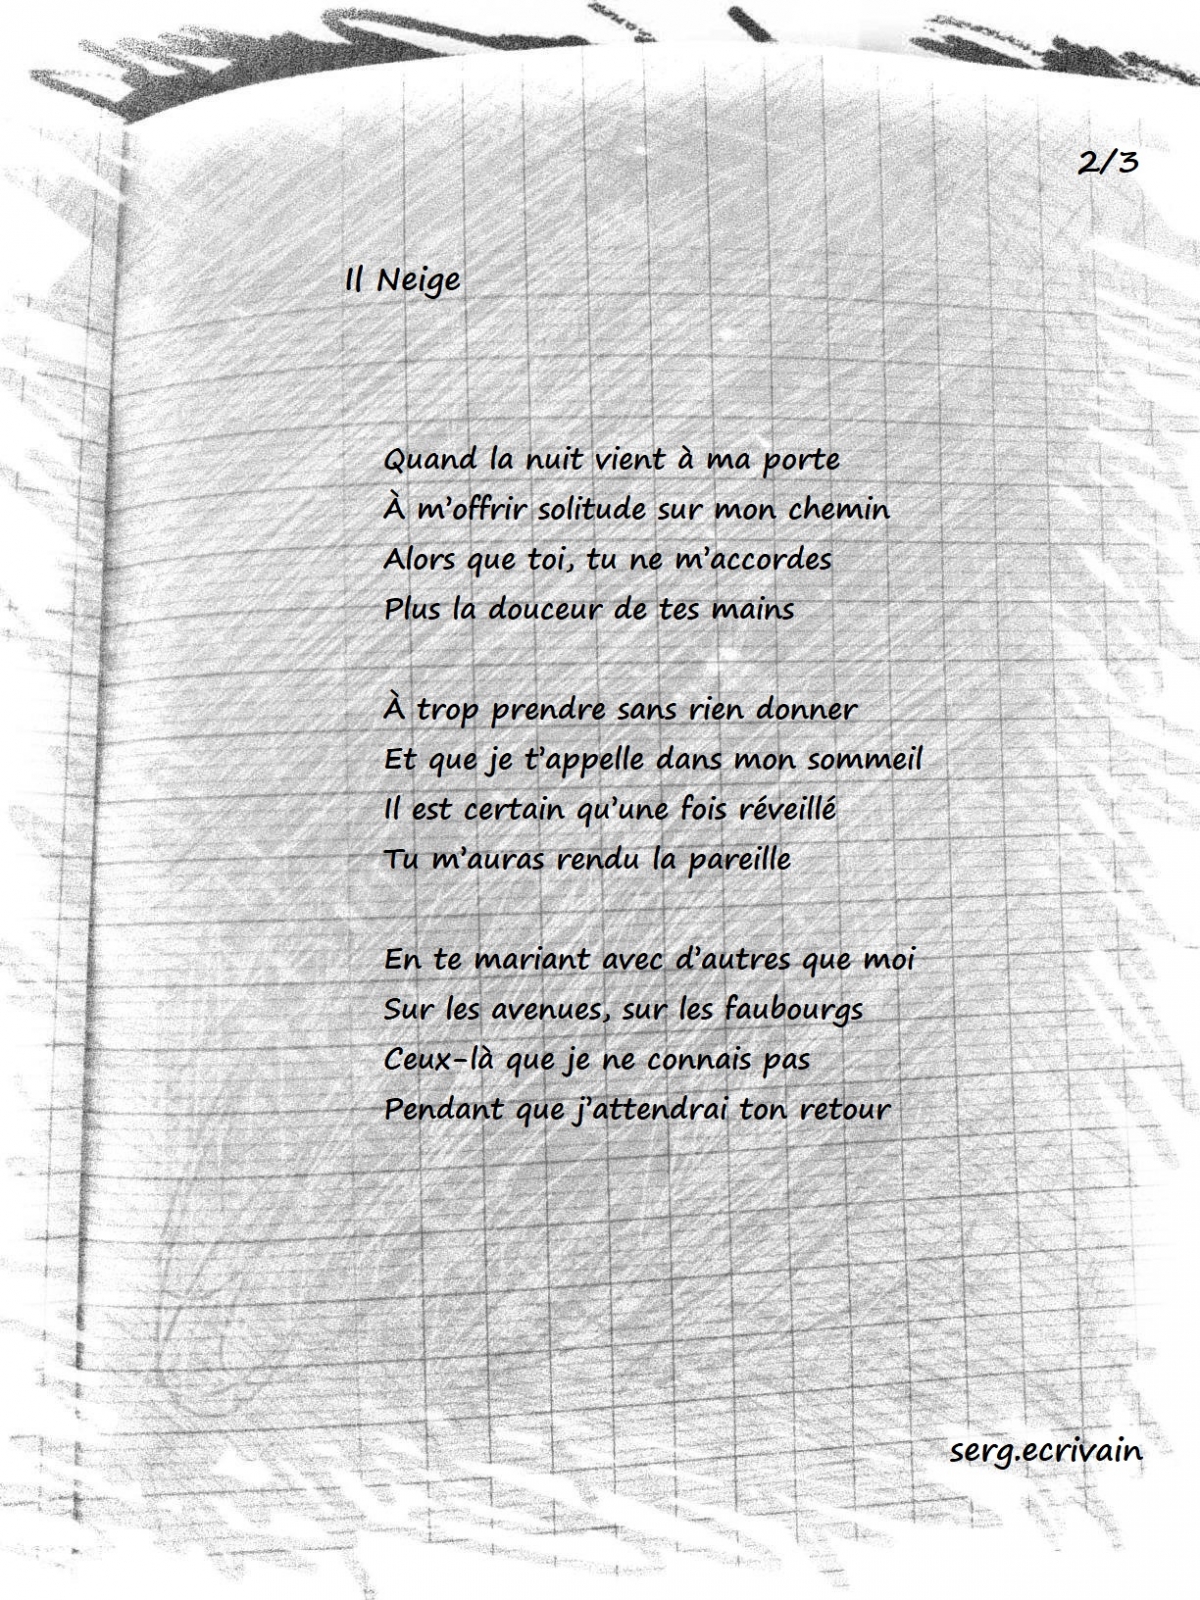 2/3
Il Neige
Quand la nuit vient à ma porte
À m’offrir solitude sur mon chemin
Alors que toi, tu ne m’accordes
Plus la douceur de tes mains
À trop prendre sans rien donner
Et que je t’appelle dans mon sommeil
Il est certain qu’une fois réveillé
Tu m’auras rendu la pareille
En te mariant avec d’autres que moi
Sur les avenues, sur les faubourgs
Ceux-là que je ne connais pas
Pendant que j’attendrai ton retour
serg.ecrivain